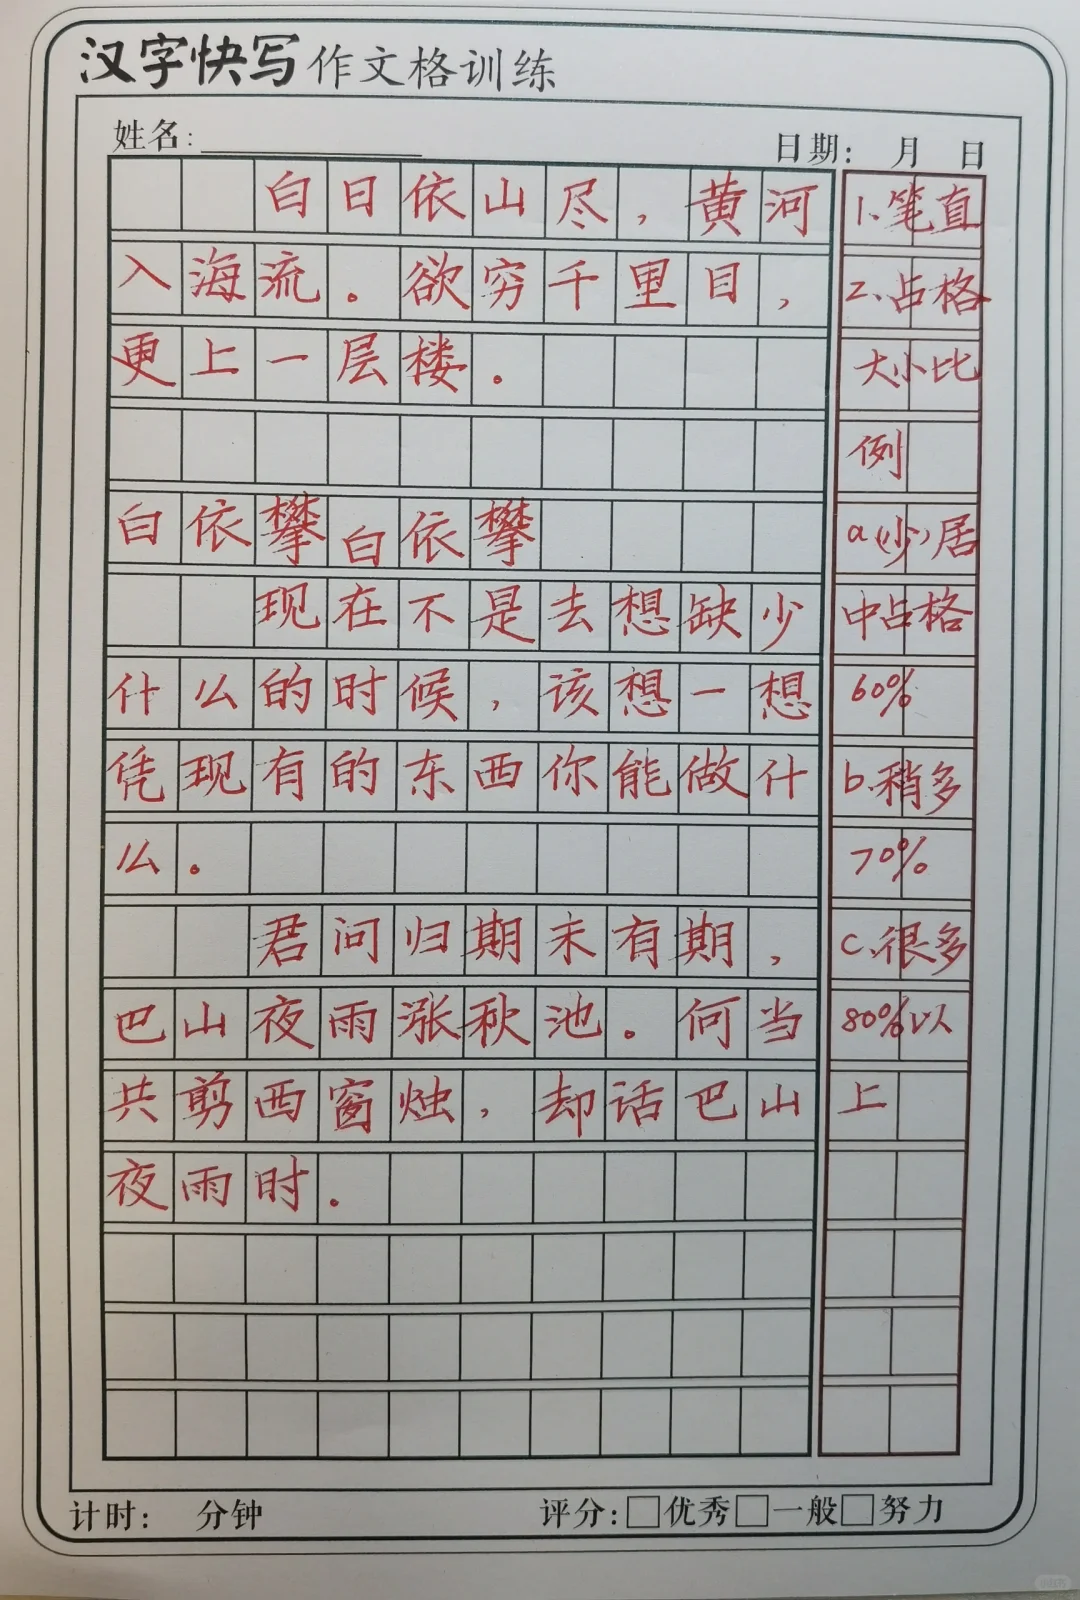 汉字快写作文格训练
姓名:
日期: 月 日
白日依山尽，黄河
入海流。欲穷千里目，
更上一层楼。
白依攀白依攀
现在不是去想缺少
什么的时候，该想一想
凭现有的东西你能做什
么。
君问归期未有期，
巴山夜雨涨秋池。何当
共剪西窗烛，却话巴山
夜雨时。
1.笔直
2.占格
大小比
例
a(少)居
中占格
60%
b.稍多
70%
c.很多
80%以
上
计时: 分钟
评分:□优秀□一般□努力